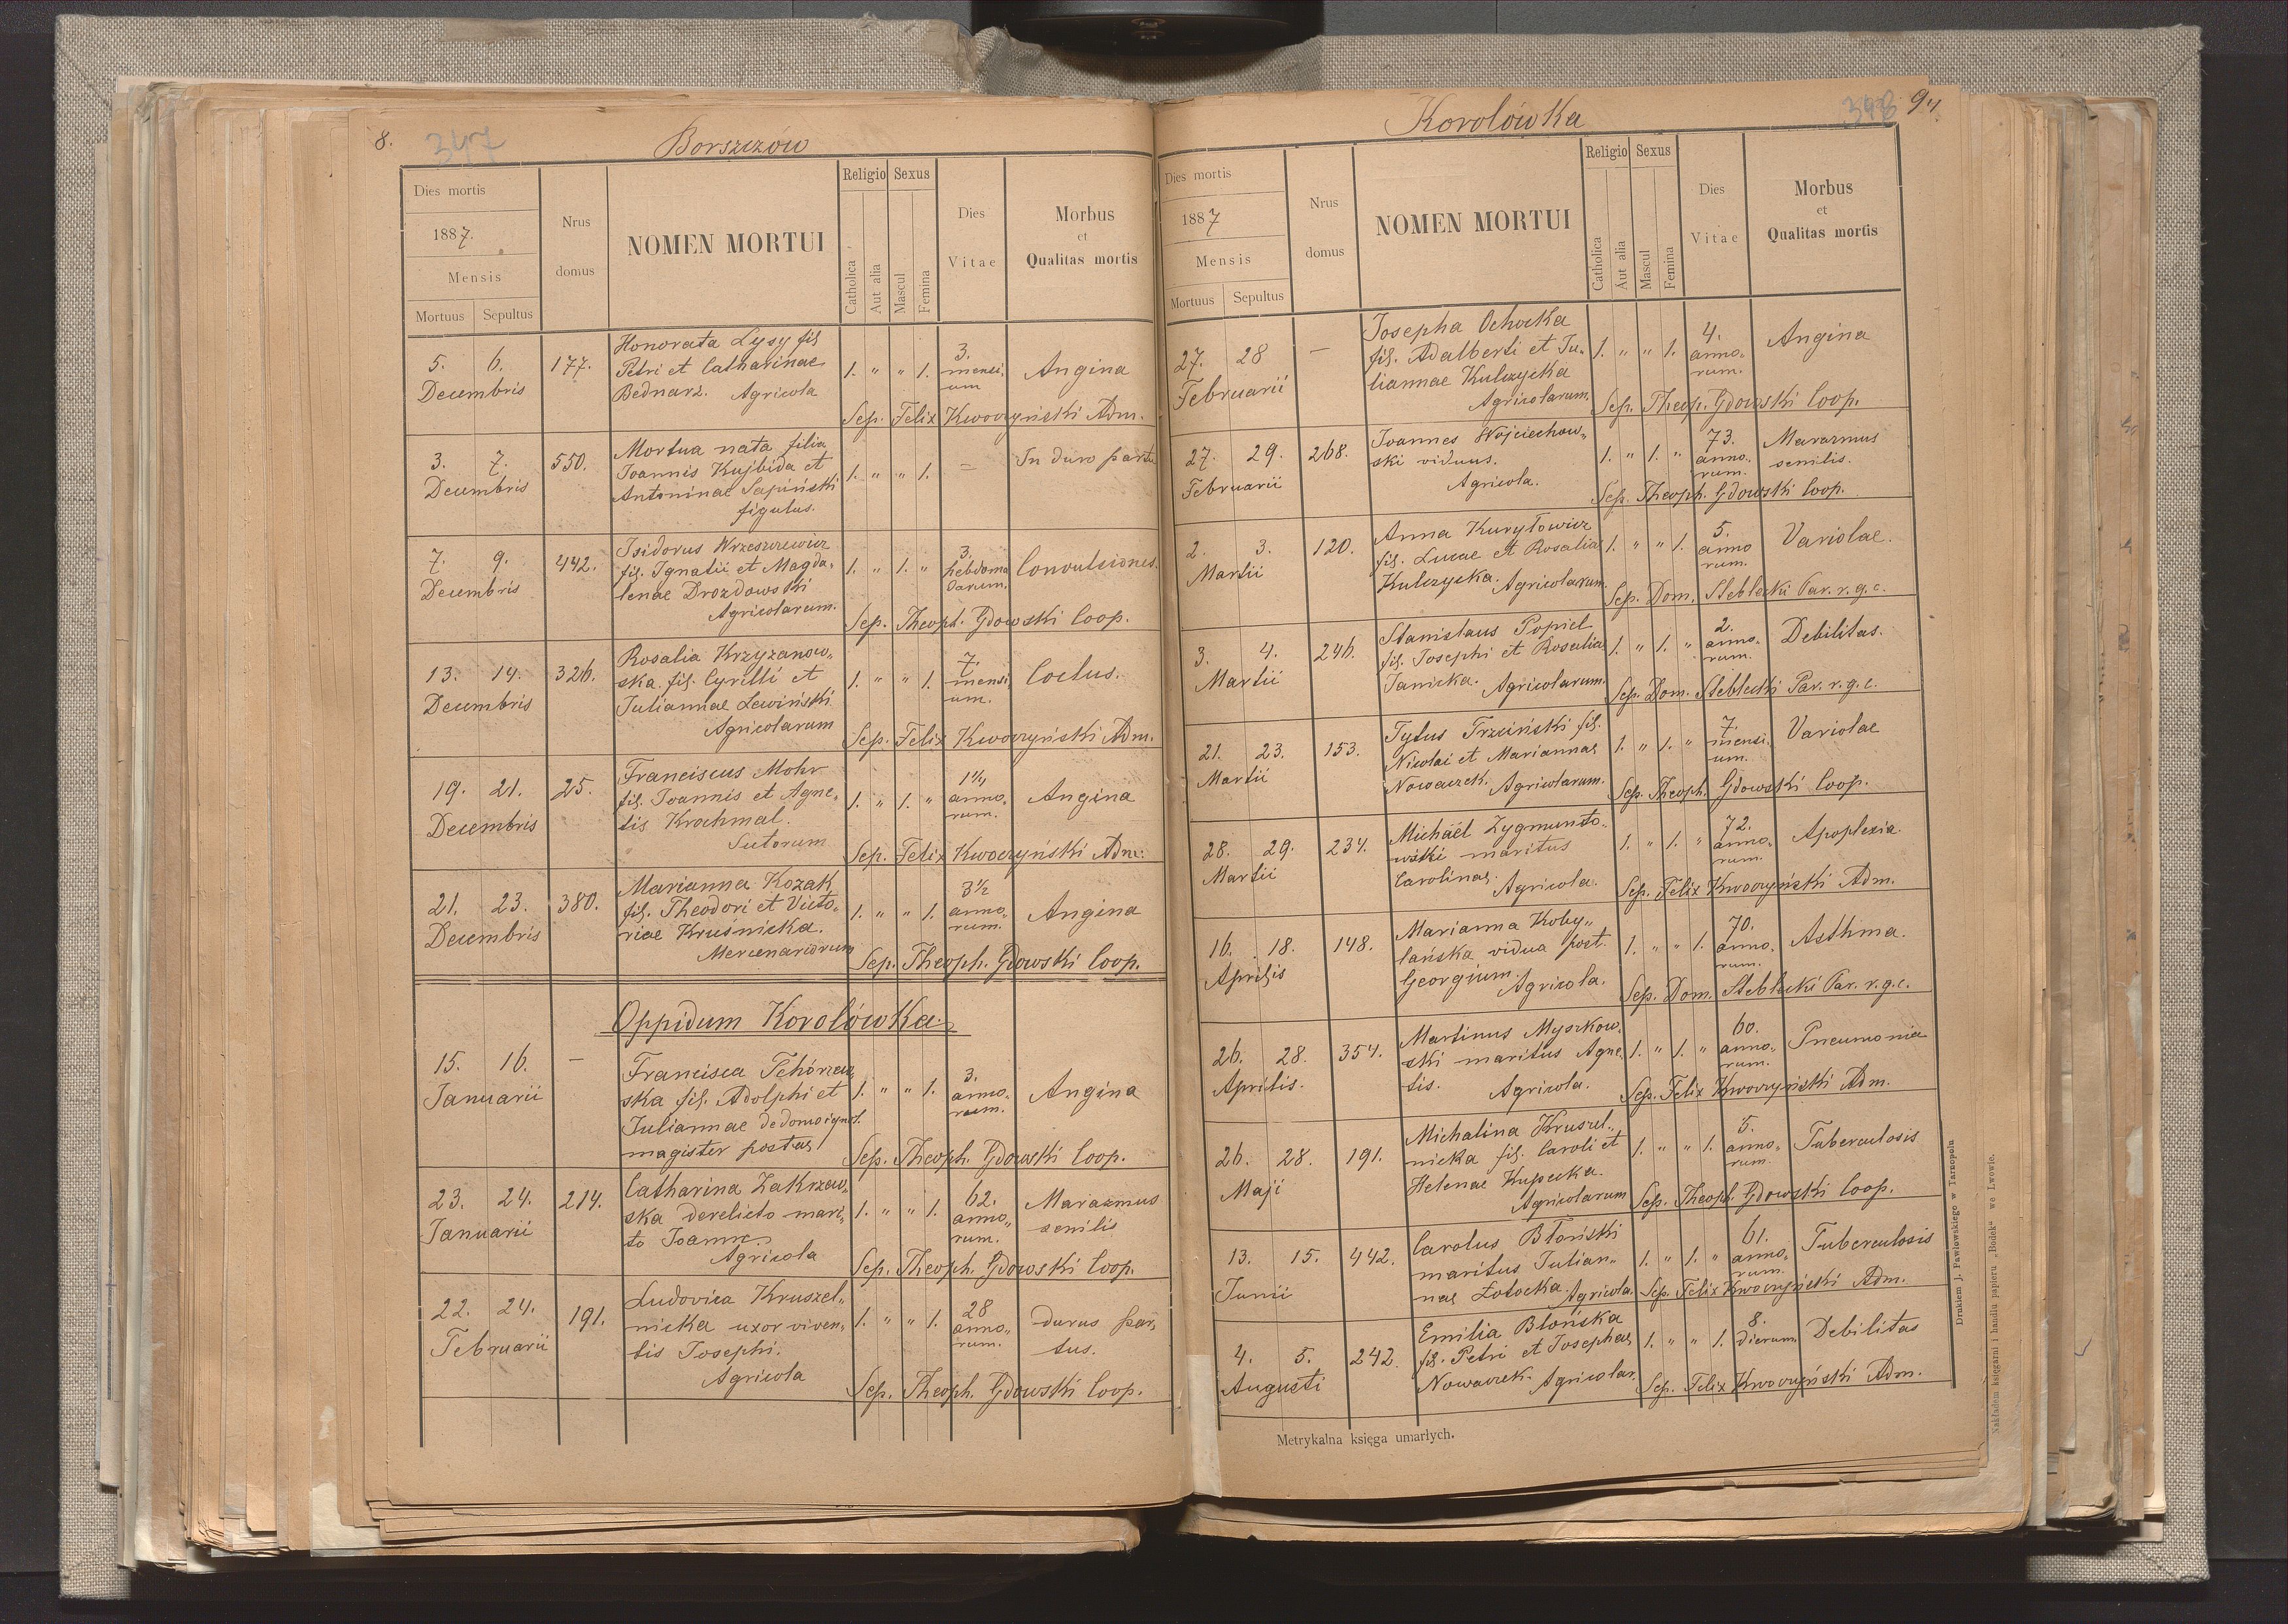 8.
347
Borszczów
Dies mortis
1887.
Mensis
Mortuus Sepultus
Nrus domus
NOMEN MORTUI
Religio
Catholica
Aut alia
Sexus
Mascul
Femina
Dies Vitae
Morbus et Qualitas mortis
5. 6. 177. Honorata Lysy fil.
Decembris
Petri et Catharinae
Bednarz. Agricola
1. " " 1. 3. mensi, um Angina
Sep. Felix Kwoczyński Adm.
3. 7. 550. Mortua nata filia
Decembris
Joannis Kujbida et
Antoninae Sapiński
figulus.
1. " " 1. — In duro partu
7. 9. 442. Isidorus Wrzeszczewicz
Decembris
fil. Ignatii et Magda„
lenae Drozdowski
Agricolarum.
1. " 1. " 3. hebdoma darum. Convulsiones.
Sep. Theoph. Gdowski Coop.
13. 14. 326. Rosalia Krzyzanow„
Decembris
ska fil. Cyrilli et
Juliannae Lewiński
Agricolarum
1. " " 1. 7. mensi, um. Coctus.
Sep. Felix Kwoczyński Adm.
19. 21. 25. Franciscus Mohr
Decembris
fil. Joannis et Agne„
tis Krochmal.
Sutorum
1. " 1. " 1¼ anno„ rum. Angina
Sep. Felix Kwoczyński Adm.
21. 23. 380. Marianna Kozak
Decembris
fil. Theodori et Victo„
riae Kruśnicka.
Mercenariorum
1. " " 1. 3½ anno„ rum. Angina
Sep. Theoph. Gdowski Coop.
Oppidum Korolówka
15. 16. — Francisca Tchórzew„
Januarii
ska fil. Adolphi et
Juliannae de domo ignot.
magister postae
1. " " 1. 3. anno„ rum. Angina
Sep. Theoph. Gdowski Coop.
23. 24. 214. Catharina Zakrzew„
Januarii
ska derelicto mari„
to Joanne
Agricola
1. " " 1. 62. anno„ rum. Marazmus senilis
Sep. Theoph. Gdowski Coop.
22. 24. 191. Ludovica Kruszel„
Februarii
nicka uxor viven„
tis Josephi.
Agricola
1. " " 1. 28 anno„ rum. durus par„ tus.
Sep. Theoph. Gdowski Coop.
Korolówka
348
9
Dies mortis
1887
Mensis
Mortuus Sepultus
Nrus domus
NOMEN MORTUI
Religio
Catholica
Aut alia
Sexus
Mascul
Femina
Dies Vitae
Morbus et Qualitas mortis
27. 28 — Josepha Ochocka
Februarii
fil. Adalberti et Ju„
liannae Kulczycka
Agricolarum.
1. " " 1. 4. anno„ rum. Angina
Sep. Theop. Gdowski Coop.
27. 29. 268. Joannes Wojciechow„
Februarii
ski viduus.
Agricola.
1. " 1. " 73. anno„ rum. Marazmus senilis.
Sep. Theoph. Gdowski Coop.
2. 3. 120. Anna Kuryłowicz
Martii
fil. Lucae et Rosaliae
Kulczycka. Agricolarum.
1. " " 1. 5. anno rum. Variolae.
Sep. Dom. Steblecki Par. r. g. c.
3. 4. 246. Stanislaus Popiel
Martii
fil. Josephi et Rosaliae
Janicka. Agricolarum.
1. " 1. " 2. anno„ rum. Debilitas.
Sep. Dom. Steblecki Par. r. g. c.
21. 23. 153. Tytus Trzciński fil.
Martii
Nicolai et Mariannae
Nowaczek. Agricolarum.
1. " 1. " 7. mensi„ um. Variolae
Sep. Theoph. Gdowski Coop.
28. 29. 234. Michaël Zygmunto„
Martii
wski maritus
Carolinae. Agricola.
1. " 1. " 72. anno„ rum. Apoplexia.
Sep. Felix Kwoczyński Adm.
16. 18. 148. Marianna Koby„
Aprilis
lańska vidua post.
Georgium. Agricola.
1. " " 1. 70. anno„ rum. Asthma.
Sep. Dom. Steblecki Par. r. g. c.
26. 28. 354. Martinus Myszkow„
Aprilis.
ski maritus Agne„
tis. Agricola.
1. " 1. " 60. anno„ rum. Pneumonia
Sep. Felix Kwoczyński Adm.
26. 28. 191. Michalina Kruszel„
Maji
nicka fil. Caroli et
Helenae Kupecka.
Agricolarum
1. " " 1. 5. anno„ rum. Tuberculosis
Sep. Theoph. Gdowski Coop.
13. 15. 442. Carolus Błoński
Junii
maritus Julian„
nae Łotocka. Agricola.
1. " 1. " 61. anno„ rum. Tuberculosis
Sep. Felix Kwoczyński Adm.
4. 5. 242. Emilia Błońska
Augusti
fil. Petri et Josephae
Nowaczek. Agricolar.
1. " " 1. 8. dierum Debilitas
Sep. Felix Kwoczyński Adm.
Metrykalna księga umarłych.
Drukiem J. Pawłowskiego w Tarnopolu
Nakładem księgarni i handlu papieru „Bodek" we Lwowie.